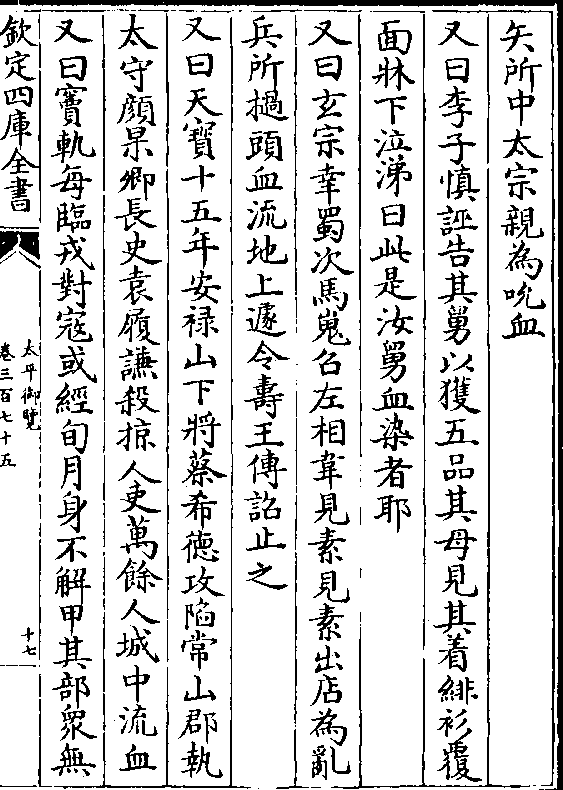 矢所中太宗親為吮血
又曰李子慎誣告其舅以獲五品其母見其着緋衫覆
面牀下泣涕曰此是汝舅血染者耶
又曰玄宗幸蜀次馬嵬召左相韋見素見素出店為亂
兵所撾頭血流地上遽令壽王傳詔止之
又曰天寶十五年安禄山下將蔡希徳攻陷常山郡執
太守顔杲卿長史袁履謙殺掠人吏萬餘人城中流血
又曰竇軌每臨戎對寇或經旬月身不解甲其部衆無
欽定四庫全書
太平御覽
卷三百七十五
十七